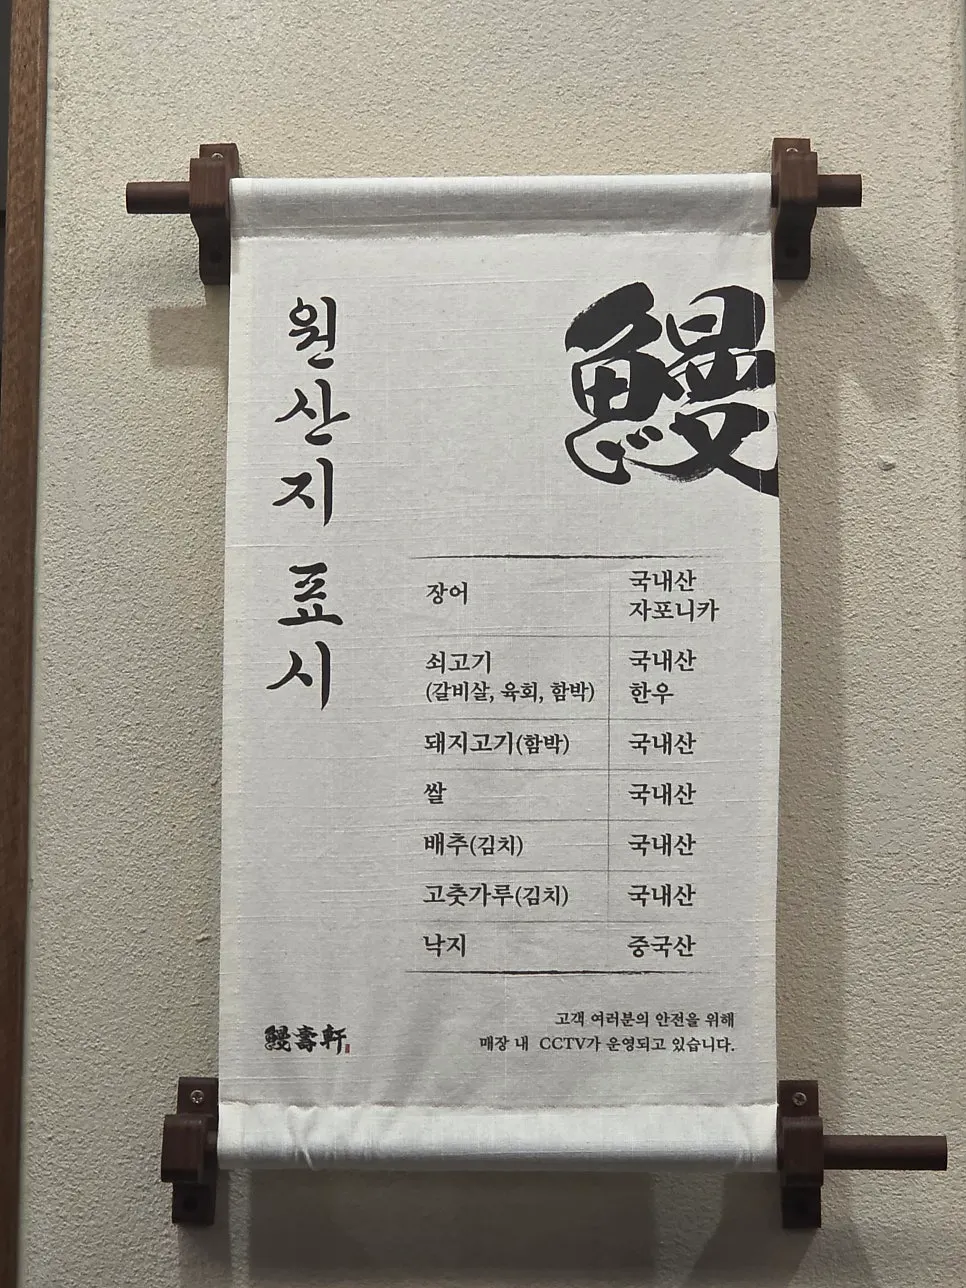 원산지 표시
鰻
장어 국내산
자포니카
쇠고기 국내산
(갈비살, 육회, 함박) 한우
돼지고기(함박) 국내산
쌀 국내산
배추(김치) 국내산
고춧가루(김치) 국내산
낙지 중국산
고객 여러분의 안전을 위해
매장 내 CCTV가 운영되고 있습니다.
鰻壽軒